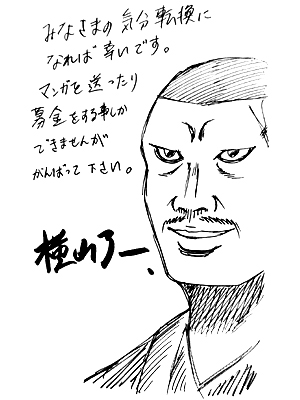 みなさまの気分転換に
なれば幸いです。
マンガを送ったり
募金をする事しか
できませんが
がんばって下さい。
横山了一